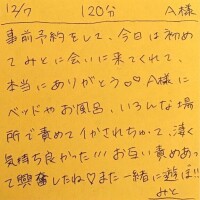 12/7 120分 A様
事前予約をして、今日は初め
てみとに会いに来てくれて、
本当にありがとう♡♡ A様に
ベッドやお風呂、いろんな場
所で責めてイかされちゃって、凄く
気持ち良かった!!! お互い責めあっ
て興奮したね♡また一緒に遊ぼ!!
みと